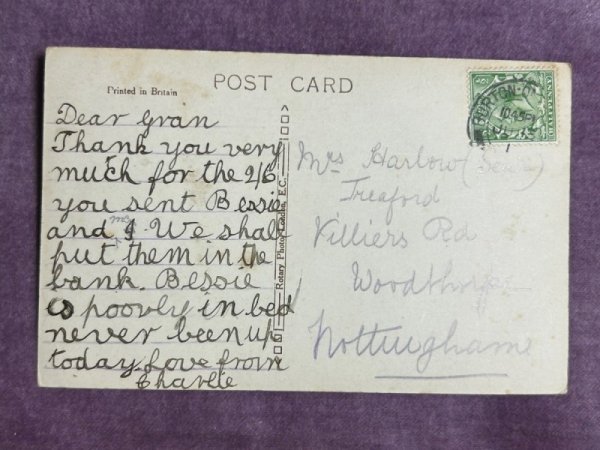 POST CARD
Printed in Britain
Dear Gran
Thank you very
much for the 2/6
you sent Bessie
and I. We shall
me
put them in the
bank. Bessie
is poorly in bed
never been up
today. Love from
Charlie
Rotary Photo, London, E.C.
Mrs Harlow (Senr)
Treaford
Villiers Rd
Woodthorpe
Nottinghame
HALFPENNY
10.45 PM